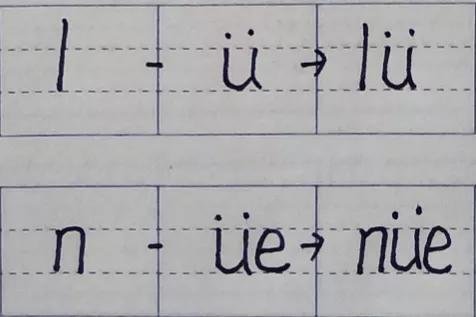 l - ü → lü
n - üe → nüe